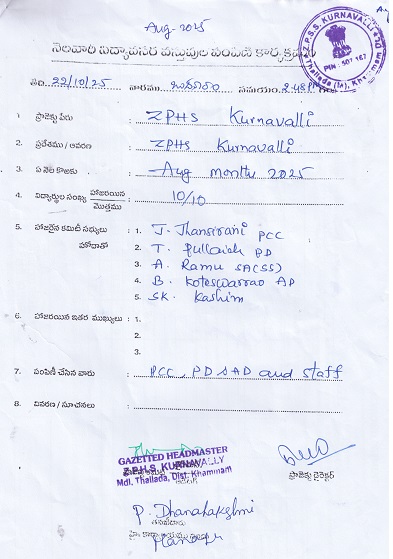 Aug 2025
నెలవారి నిత్యావసర వస్తువుల పంపిణీ కార్యక్రమం
Z.P.S.S. KURNAVALLI
PIN : 507 167
Thallada (M), Khammam
తేది. 22/10/25 వారము బుధవారం సమయం. 2:48 PM
1. ప్రాజెక్టు పేరు : ZPHS Kurnavalli
2. ప్రదేశము / ఆవరణ : ZPHS Kurnavalli
3. ఏ నెల కొరకు : Aug month 2025
4. విద్యార్థుల సంఖ్య హాజరయిన / మొత్తము : 10/10
5. హాజరైన కమిటీ సభ్యులు : 1. J. Jhansirani PCC
హోదాతో 2. T. Pullaiah PD
3. A. Ramu SA(SS)
4. B. Koteswarrao AD
5. SK. Kashim
6. హాజరయిన ఇతర ముఖ్యులు : 1.
2.
3.
7. పంపిణీ చేసిన వారు : PCC, PD & AD and staff
8. వివరణ / సూచనలు :
GAZETTED HEADMASTER
Z.P.H.S. KURNAVALLY
Mdl. Thallada, Dist. Khammam
ప్రాజెక్టు డైరెక్టర్
P. Dhanalakshmi